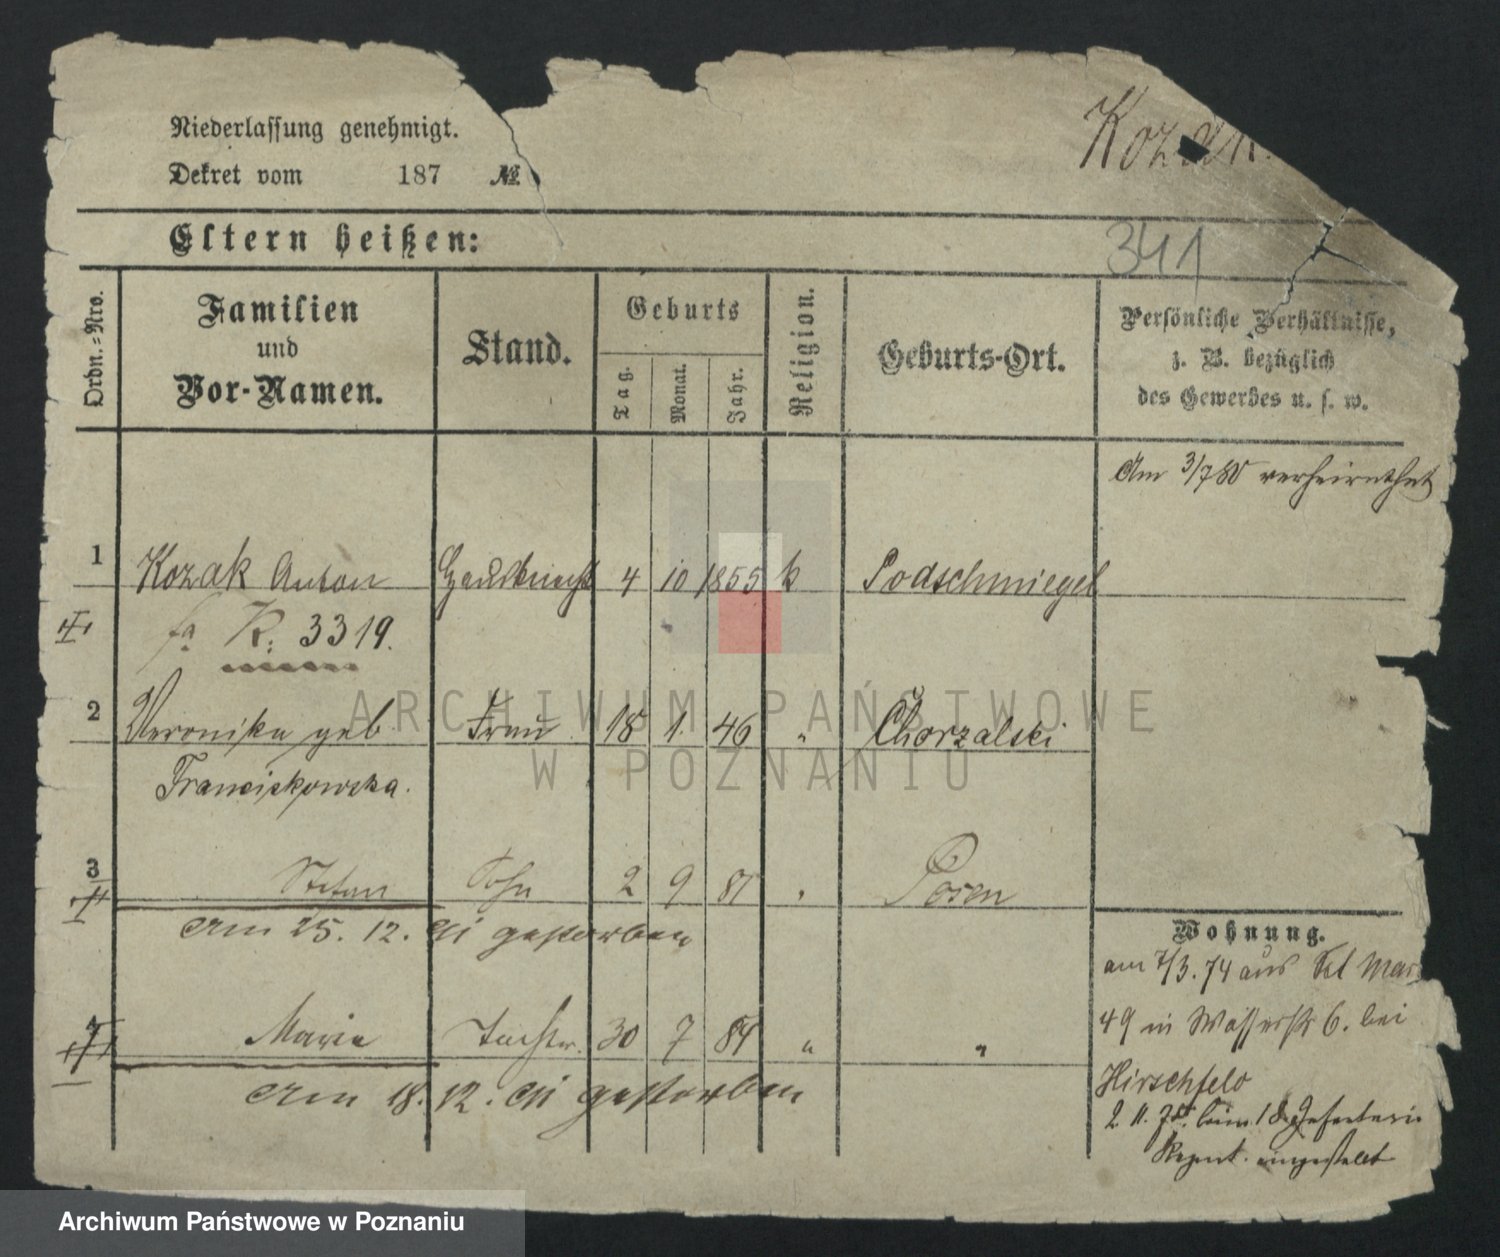 Niederlassung genehmigt.
Kozak
Dekret vom 187 №
Eltern heißen:
341
Ordn.-Nro.
Familien
und
Vor-Namen.
Stand.
Geburts
Tag.
Monat.
Jahr.
Religion.
Geburts-Ort.
Persönliche Verhältnisse,
z. B. bezüglich
des Gewerbes u. s. w.
Am 3/7 80 verheirathet
1 Kozak Anton Hausknecht 4 10 1855 k Podschmiegel
fa K. 3319.
2 Veronika geb Frau 18 1. 46 " Chorzalski
Franciskowska.
3 Stefan Sohn 2 9 81 " Posen
am 25. 12. gestorben
Wohnung.
am 7/3. 74 aus Alt Mar
49 in Wasserstr 6. bei
4 Maria Tochter. 30 7 84 " "
Hirschfeld
am 18. 12. gestorben
2. 11. beim 18 Infanterie
Regmt. eingestellt
ARCHIWUM PAŃSTWOWE
W POZNANIU
Archiwum Państwowe w Poznaniu